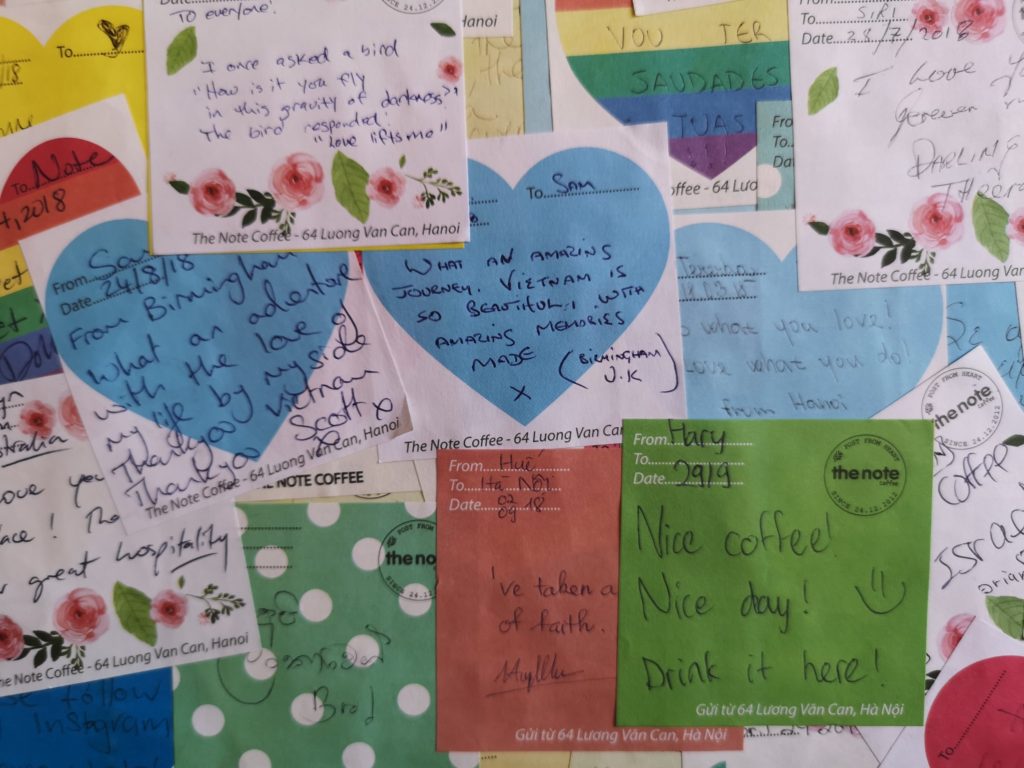 TO everyone!
I once asked a bird
"How is it you fly
in this gravity of darkness?"
The bird responded:
"Love lifts me"
The Note Coffee - 64 Luong Van Can, Hanoi
Hanoi
To
YOU TER
SAUDADES
TUAS
offee - 64 Luo
From
To
Da
From
To SIRI
Date 23/7/2018
I Love
forever
DARLING
The Note Coffee - 64 Luong Van Can
To Note
4, 2018
To SAM
WHAT AN AMAZING
JOURNEY. VIETNAM IS
SO BEAUTIFUL. WITH
AMAZING MEMORIES
MADE (BIRMINGHAM
U.K)
X
The Note Coffee - 64 Luong Van Can, Hanoi
From
Date 24/8/18
From Birmingham
What an adventure
with the love of
my life by my side
Thankyou Vietnam
Thankyou Scott x
The Note Coffee - 64 Luong Van Can, Hanoi
what you love!
love what you do!
from Hanoi
POST FROM HEART
the note
coffee
SINCE 24.12.2012
coffee
THE NOTE COFFEE
great hospitality
The Note Coffee - 64 Luong Van Can, Hanoi
follow
Instagram
POST FROM
the no
Brad
From Huế
To Hà Nội
Date 02
09 18
've taken a
of faith.
Gửi từ 64 Lương Văn Can, Hà Nội
From Hary
To
Date 29/9
POST FROM HEART
the note
coffee
SINCE 24.12.2012
Nice coffee!
Nice day!
Drink it here!
Gửi từ 64 Lương Văn Can, Hà Nội
To